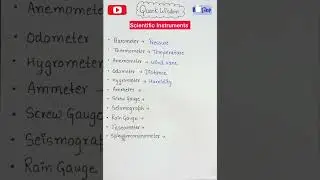 Quark Wisdom
Like
Scientific Instruments
• Barometer → Pressure
• Thermometer → Temperature
• Anemometer → wind vane
• Odometer → Distance
• Hygrometer → Humidity
• Ammeter →
• Screw Gauge →
• Seismograph →
• Rain Gauge →
• Tyseometer →
• Sphygmomanometer →
Anemometer
Odometer
Hygrometer
Ammeter
Screw Gauge
Seismograph
Rain Gauge